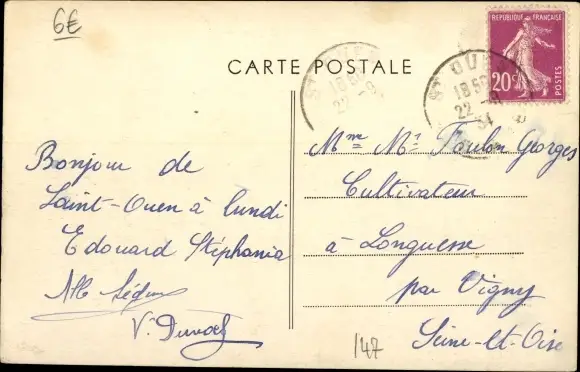 6€
CARTE POSTALE
REPUBLIQUE FRANÇAISE
20c
POSTES
ST OUEN
18 5
22 -8
ST OUEN
18 5
22 -8
34
Bonjour de
Saint-Ouen à lundi
Edouard Stéphania
V. Duval
Mme Mr Foulon Georges
Cultivateur
à Longuesse
par Vigny
Seine-et-Oise
147